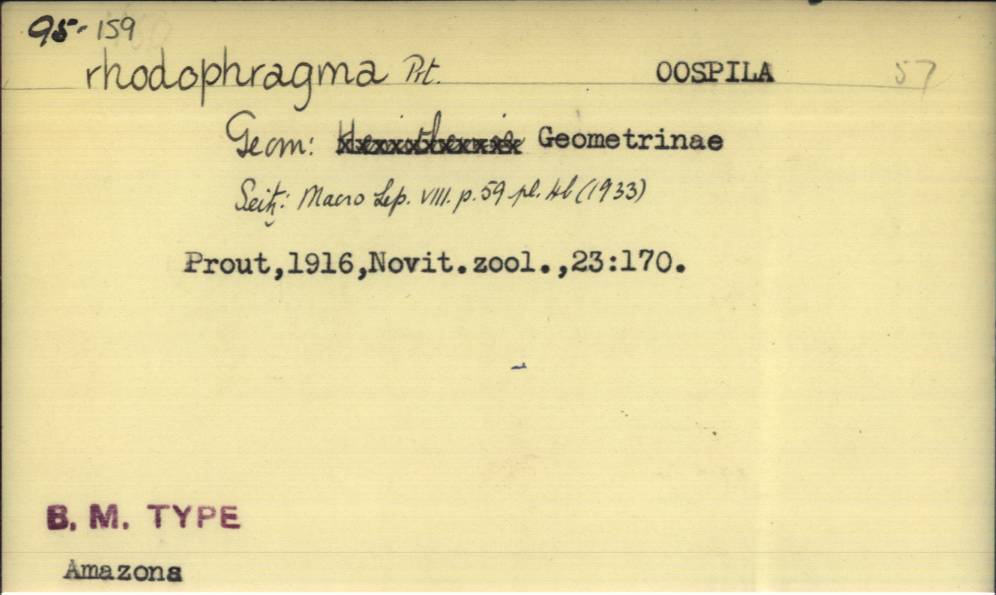 95-159
rhodophragma Prt. OOSPILA 57
Geom: Geometrinae
Seitz: Macro Lep. VIII. p.59 pl. (1933)
Prout,1916,Novit.zool.,23:170.
B. M. TYPE
Amazons